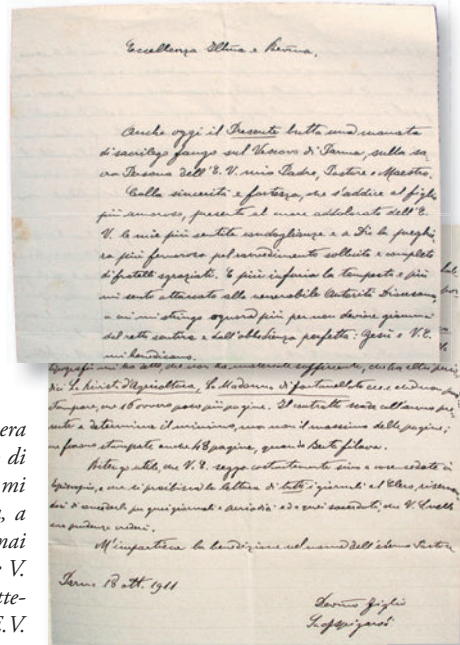 Eccellenza Ill.ma e Rev.ma,
Anche oggi il Presente butta una manata
di sacrilego fango sul Vescovo di Parma, sulla sa
cra Persona dell'E. V. mio Padre, Pastore e Maestro.
Colla sincerità e fortezza, che s'addice al figlio
più amoroso, presento al cuore addolorato dell'E.
V. le mie più sentite condoglianze e a Dio la preghie
ra più fervorosa pel ravvedimento sollecito e completo
di fratelli sgraziati. E più infuria la tempesta e più
mi sento attaccato alla venerabile Autorità Diocesana,
a cui mi stringo ognora più per non deviare giammai
dal retto sentire e dall'obbedienza perfetta: Gesù e V.E.
mi benedicano.
che non ha materiale sufficiente, che ha altri perio
dici La Rivista d'Agricoltura, La Madonna di Fontanellato ecc. e che non può
stampare, ore 16 ovvero poco più pagine. Il contratto scade coll'anno pre
sente e determina il minimo, ma non il massimo delle pagine;
ne furono stampate anche 48 pagine, quando Berta filava.
Ritengo utile, che V. E. regga costantemente
Episcopio, e che si proibisca la lettura di tutti i giornali al Clero,
dosi di concederla per quei giornali e periodici ed a quei sacerdoti, che V. Ecc.
prudenza crederà.
M'impartisca la benedizione nel nome dell'eterno Pastore
Parma 18 ott. 1911
Dev.mo figlio
era
di
mi
, a
mai
V.
tte-
E.V.